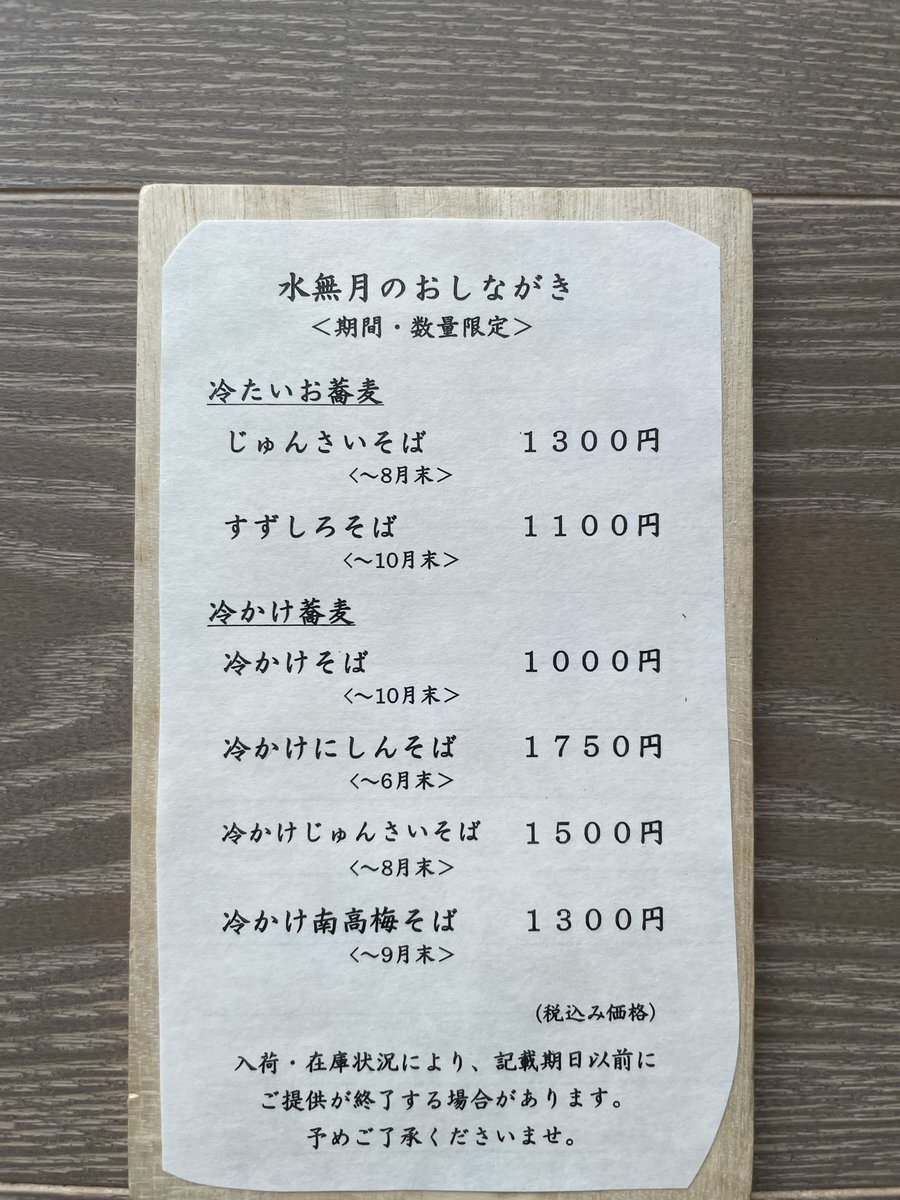 水無月のおしながき
＜期間・数量限定＞
冷たいお蕎麦
じゅんさいそば　１３００円
＜～8月末＞
すずしろそば　１１００円
＜～10月末＞
冷かけ蕎麦
冷かけそば　１０００円
＜～10月末＞
冷かけにしんそば　１７５０円
＜～6月末＞
冷かけじゅんさいそば　１５００円
＜～8月末＞
冷かけ南高梅そば　１３００円
＜～9月末＞
(税込み価格)
入荷・在庫状況により、記載期日以前に
ご提供が終了する場合があります。
予めご了承くださいませ。